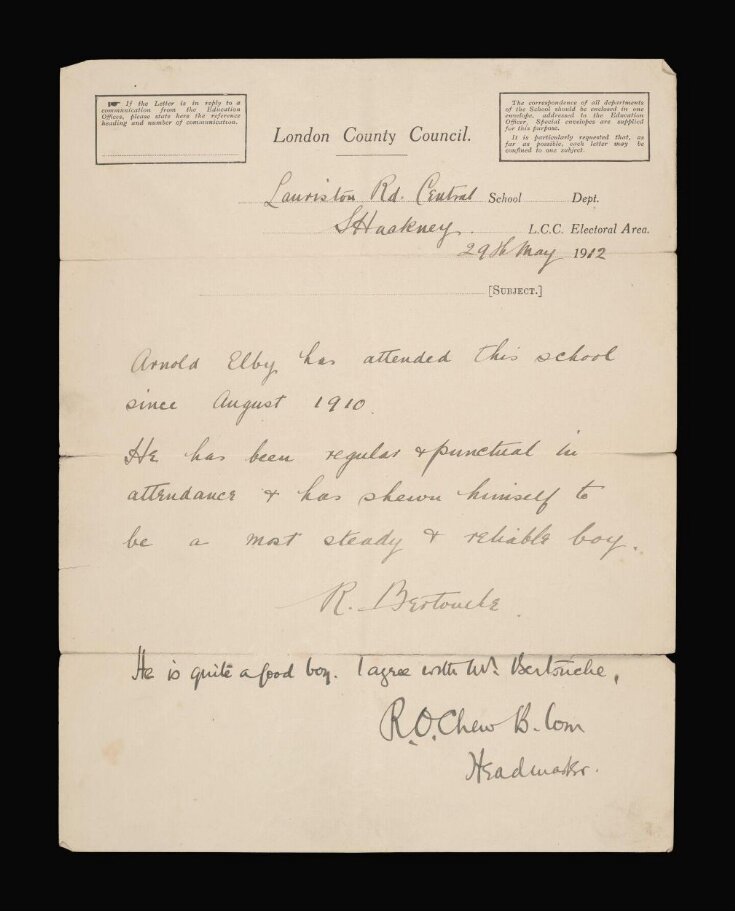 ☞ If the Letter is in reply to a
communication from the Education
Offices, please state here the reference
heading and number of communication.
The correspondence of all departments
of the School should be enclosed in one
envelope, addressed to the Education
Officer. Special envelopes are supplied
for this purpose.
It is particularly requested that, as
far as possible, each letter may be
confined to one subject.
London County Council.
Lauriston Rd. Central School Dept.
S Hackney. L.C.C. Electoral Area.
29th May 1912
[SUBJECT.]
Arnold Elby has attended this school
since August 1910.
He has been regular & punctual in
attendance & has shewn himself to
be a most steady & reliable boy.
R. Bertouche
He is quite a good boy. I agree with Mr. Bertouche.
R.O. Chew B. Com
Headmaster.